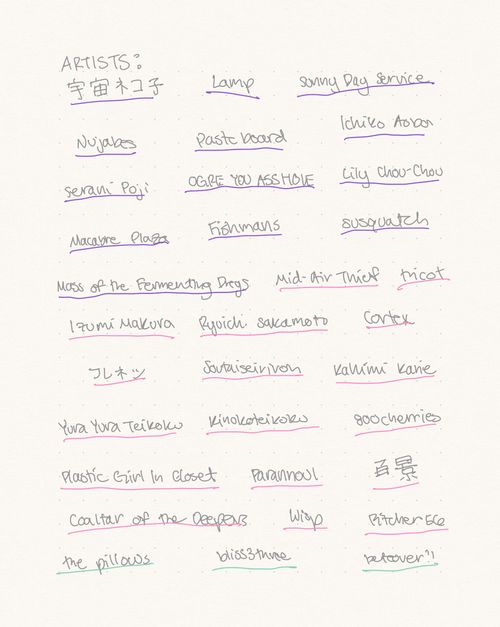 ARTISTS:
宇宙ネコ子 Lamp Sunny Day Service
Nujabes Pasteboard Ichiko Aoba
Serani Poji OGRE YOU ASSHOLE Lily Chou-Chou
Macabre Plaza Fishmans susquatch
Mass of the Fermenting Dregs Mid-Air Thief tricot
Izumi Makura Ryuichi Sakamoto Cortex
フレネシ Soutaiseiriron Kahimi Karie
Yura Yura Teikoku Kinokoteikoku 800cherries
Plastic Girl In Closet Parannoul 百景
Coaltar of the Deepers Wisp Pitcher56
the pillows bliss3three betcover!!